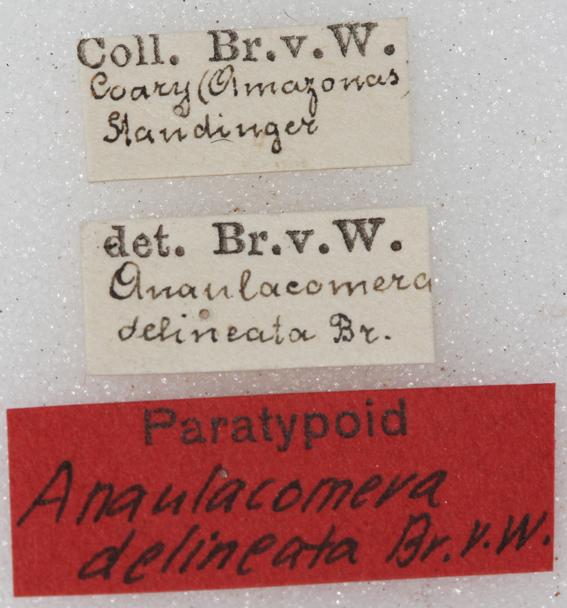 Coll. Br.v.W.
Coary (Amazonas)
Staudinger
det. Br.v.W.
Anaulacomera
delineata Br.
Paratypoid
Anaulacomera
delineata Br.v.W.